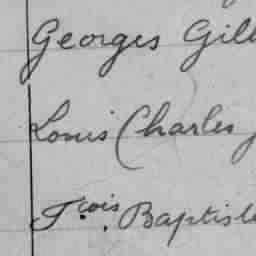 Georges Gill
Louis Charles J
Fcois Baptiste